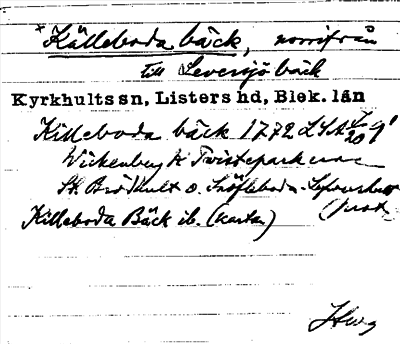 *Källeboda bäck, norrifrån
till Leversjö bäck
Kyrkhults sn, Listers hd, Blek. län
Killeboda bäck 1772 LSA
Wickenberg K Twisteparkerne
St. Brödhult o. Snöfleboda-
Killeboda Bäck ib. (karta)